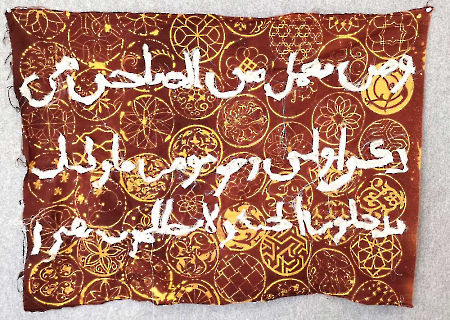 ومن يعمل من الصلحت من
ذكر او انثى وهو مومن فاولئك
يدخلون الجنة ولا يظلمون نقيرا